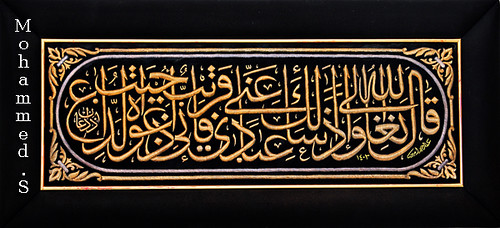 Mohammed .S
قال الله تعالى وإذا سألك عبادي عني فإني قريب أجيب دعوة الداع إذا دعان
١٤٠٣